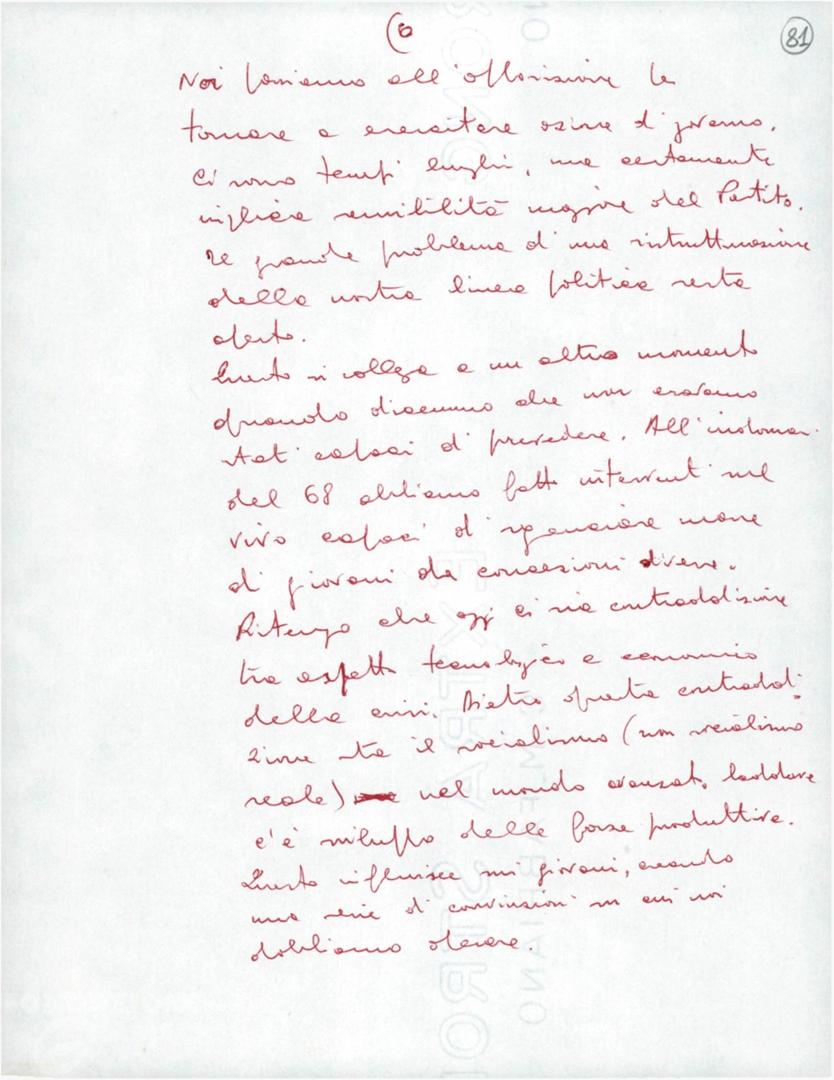 (6
81
Noi poniamo all'opposizione la
tornare a esercitare azione di governo.
Ci sono tempi lunghi, ma certamente
migliore sensibilità maggiore del Partito.
Il grande problema d'una ristrutturazione
della nostra linea politica resta
aperto.
Questo si collega a un altro momento
quando dicemmo che non eravamo
stati capaci di prevedere. All'indoman
del 68 abbiamo fatto interventi nel
vivo capaci di sganciare masse
di giovani da concezioni diverse.
Ritengo che oggi ci sia contraddizione
tra aspetto tecnologico e economico
della crisi. Dietro questa contraddi-
zione sta il socialismo (non socialismo
reale) nel mondo avanzato laddove
c'è sviluppo delle forze produttive.
Questo influisce sui giovani, creando
una serie di convinzioni su cui noi
dobbiamo operare.